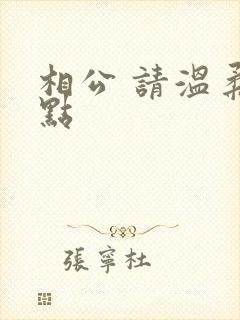 相公 請溫柔
點
張寧杜